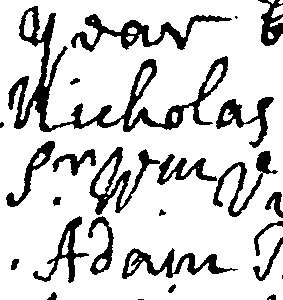 year
Nicholas
Sr. Wm
Adam